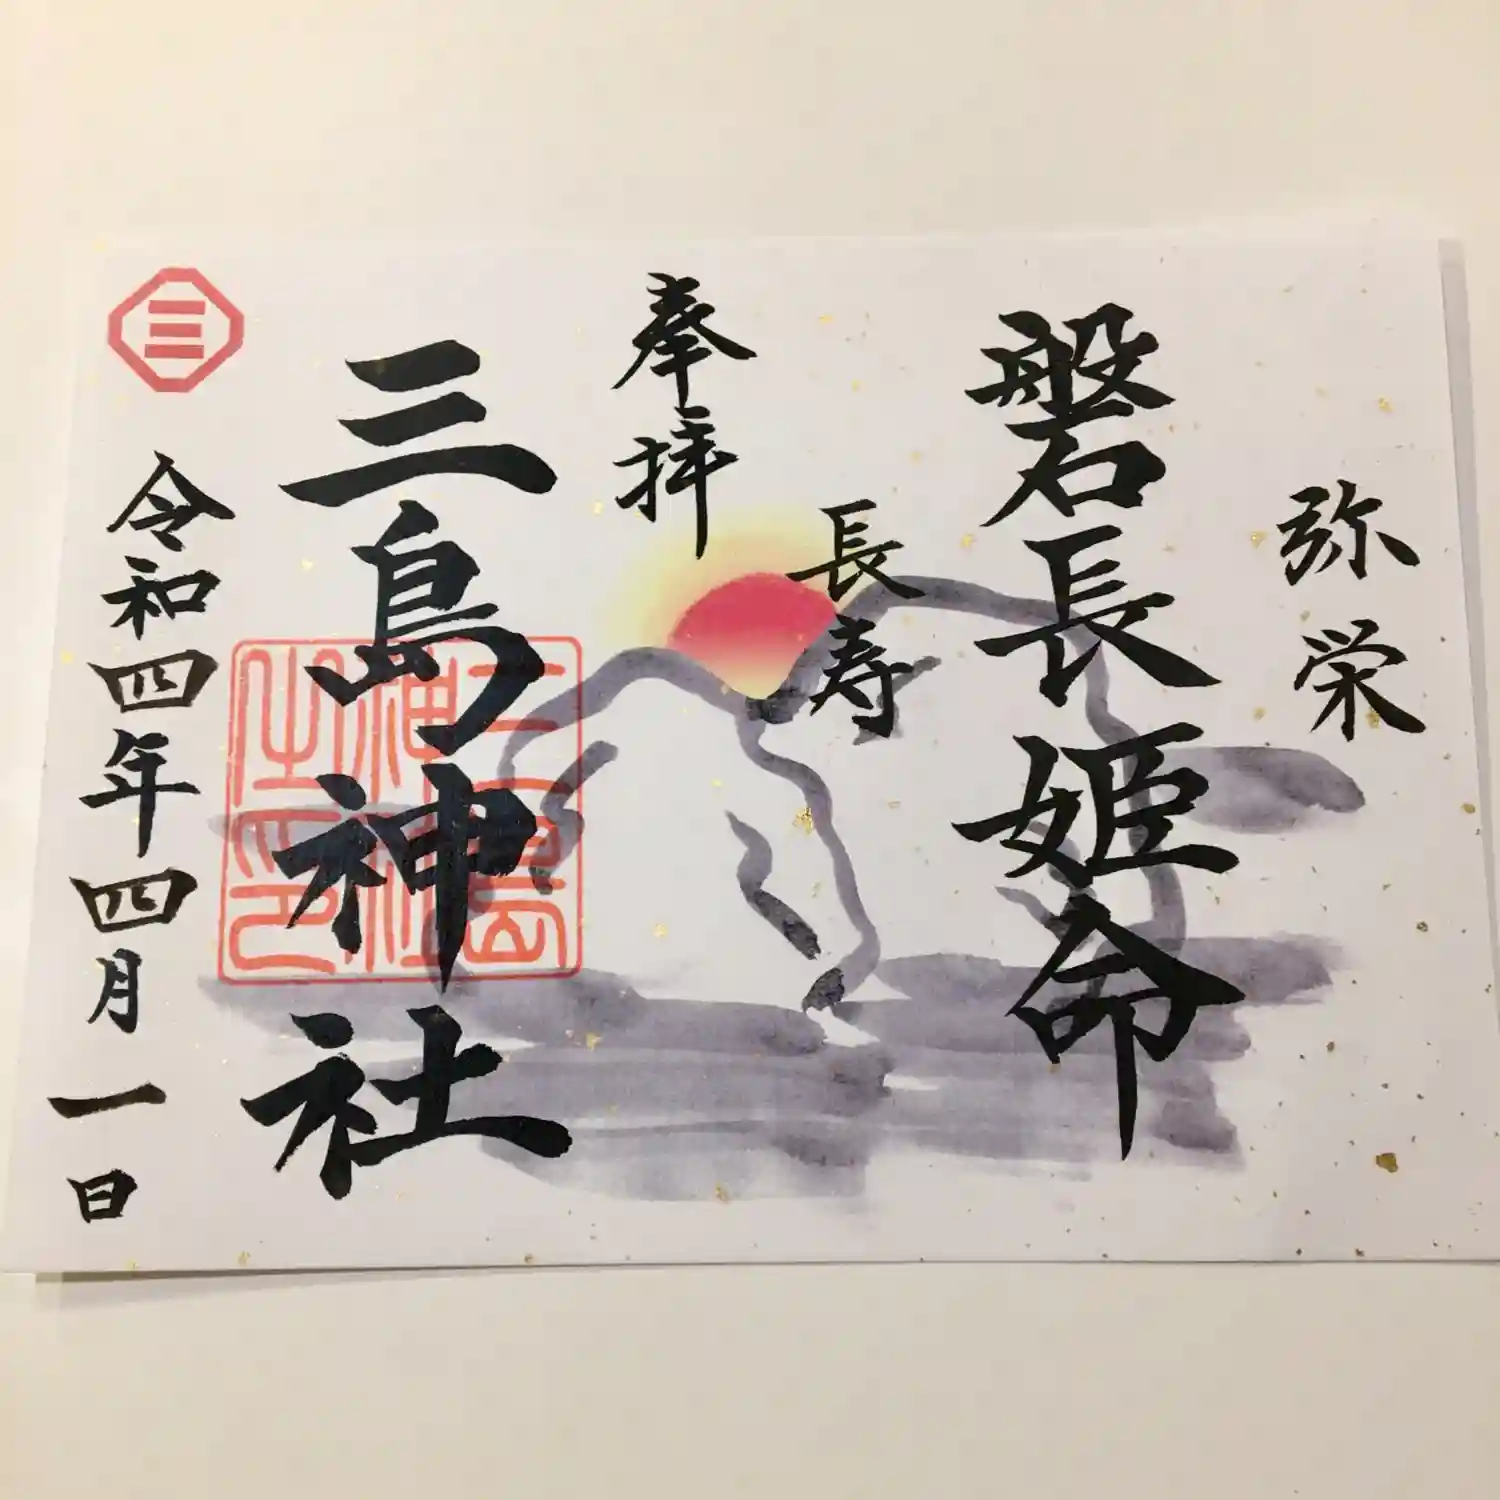 弥栄
磐長姫命
長寿
奉拝
三島神社
三島
神社
之印
三
令和四年四月一日